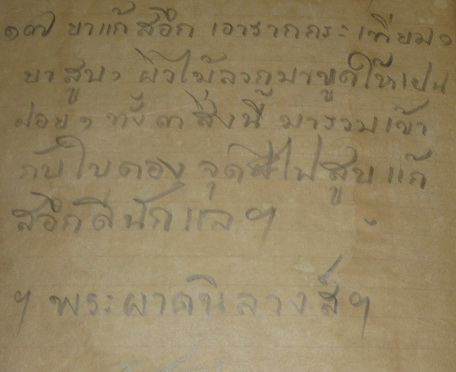 ๑๗ ยาแก้สอึก เอารากกระเทียม๑
ยาสูบ๑ ผิวไม้ลวกูมาขูดให้เปน
ฝอยๆ ทั้ง ๓ สิ่งนี้ มารวมเข้า
กับใบตอง จุดสูบ แก้
สอึกดีนักแลฯ
ฯ พระผาคนิลวงส์ฯ